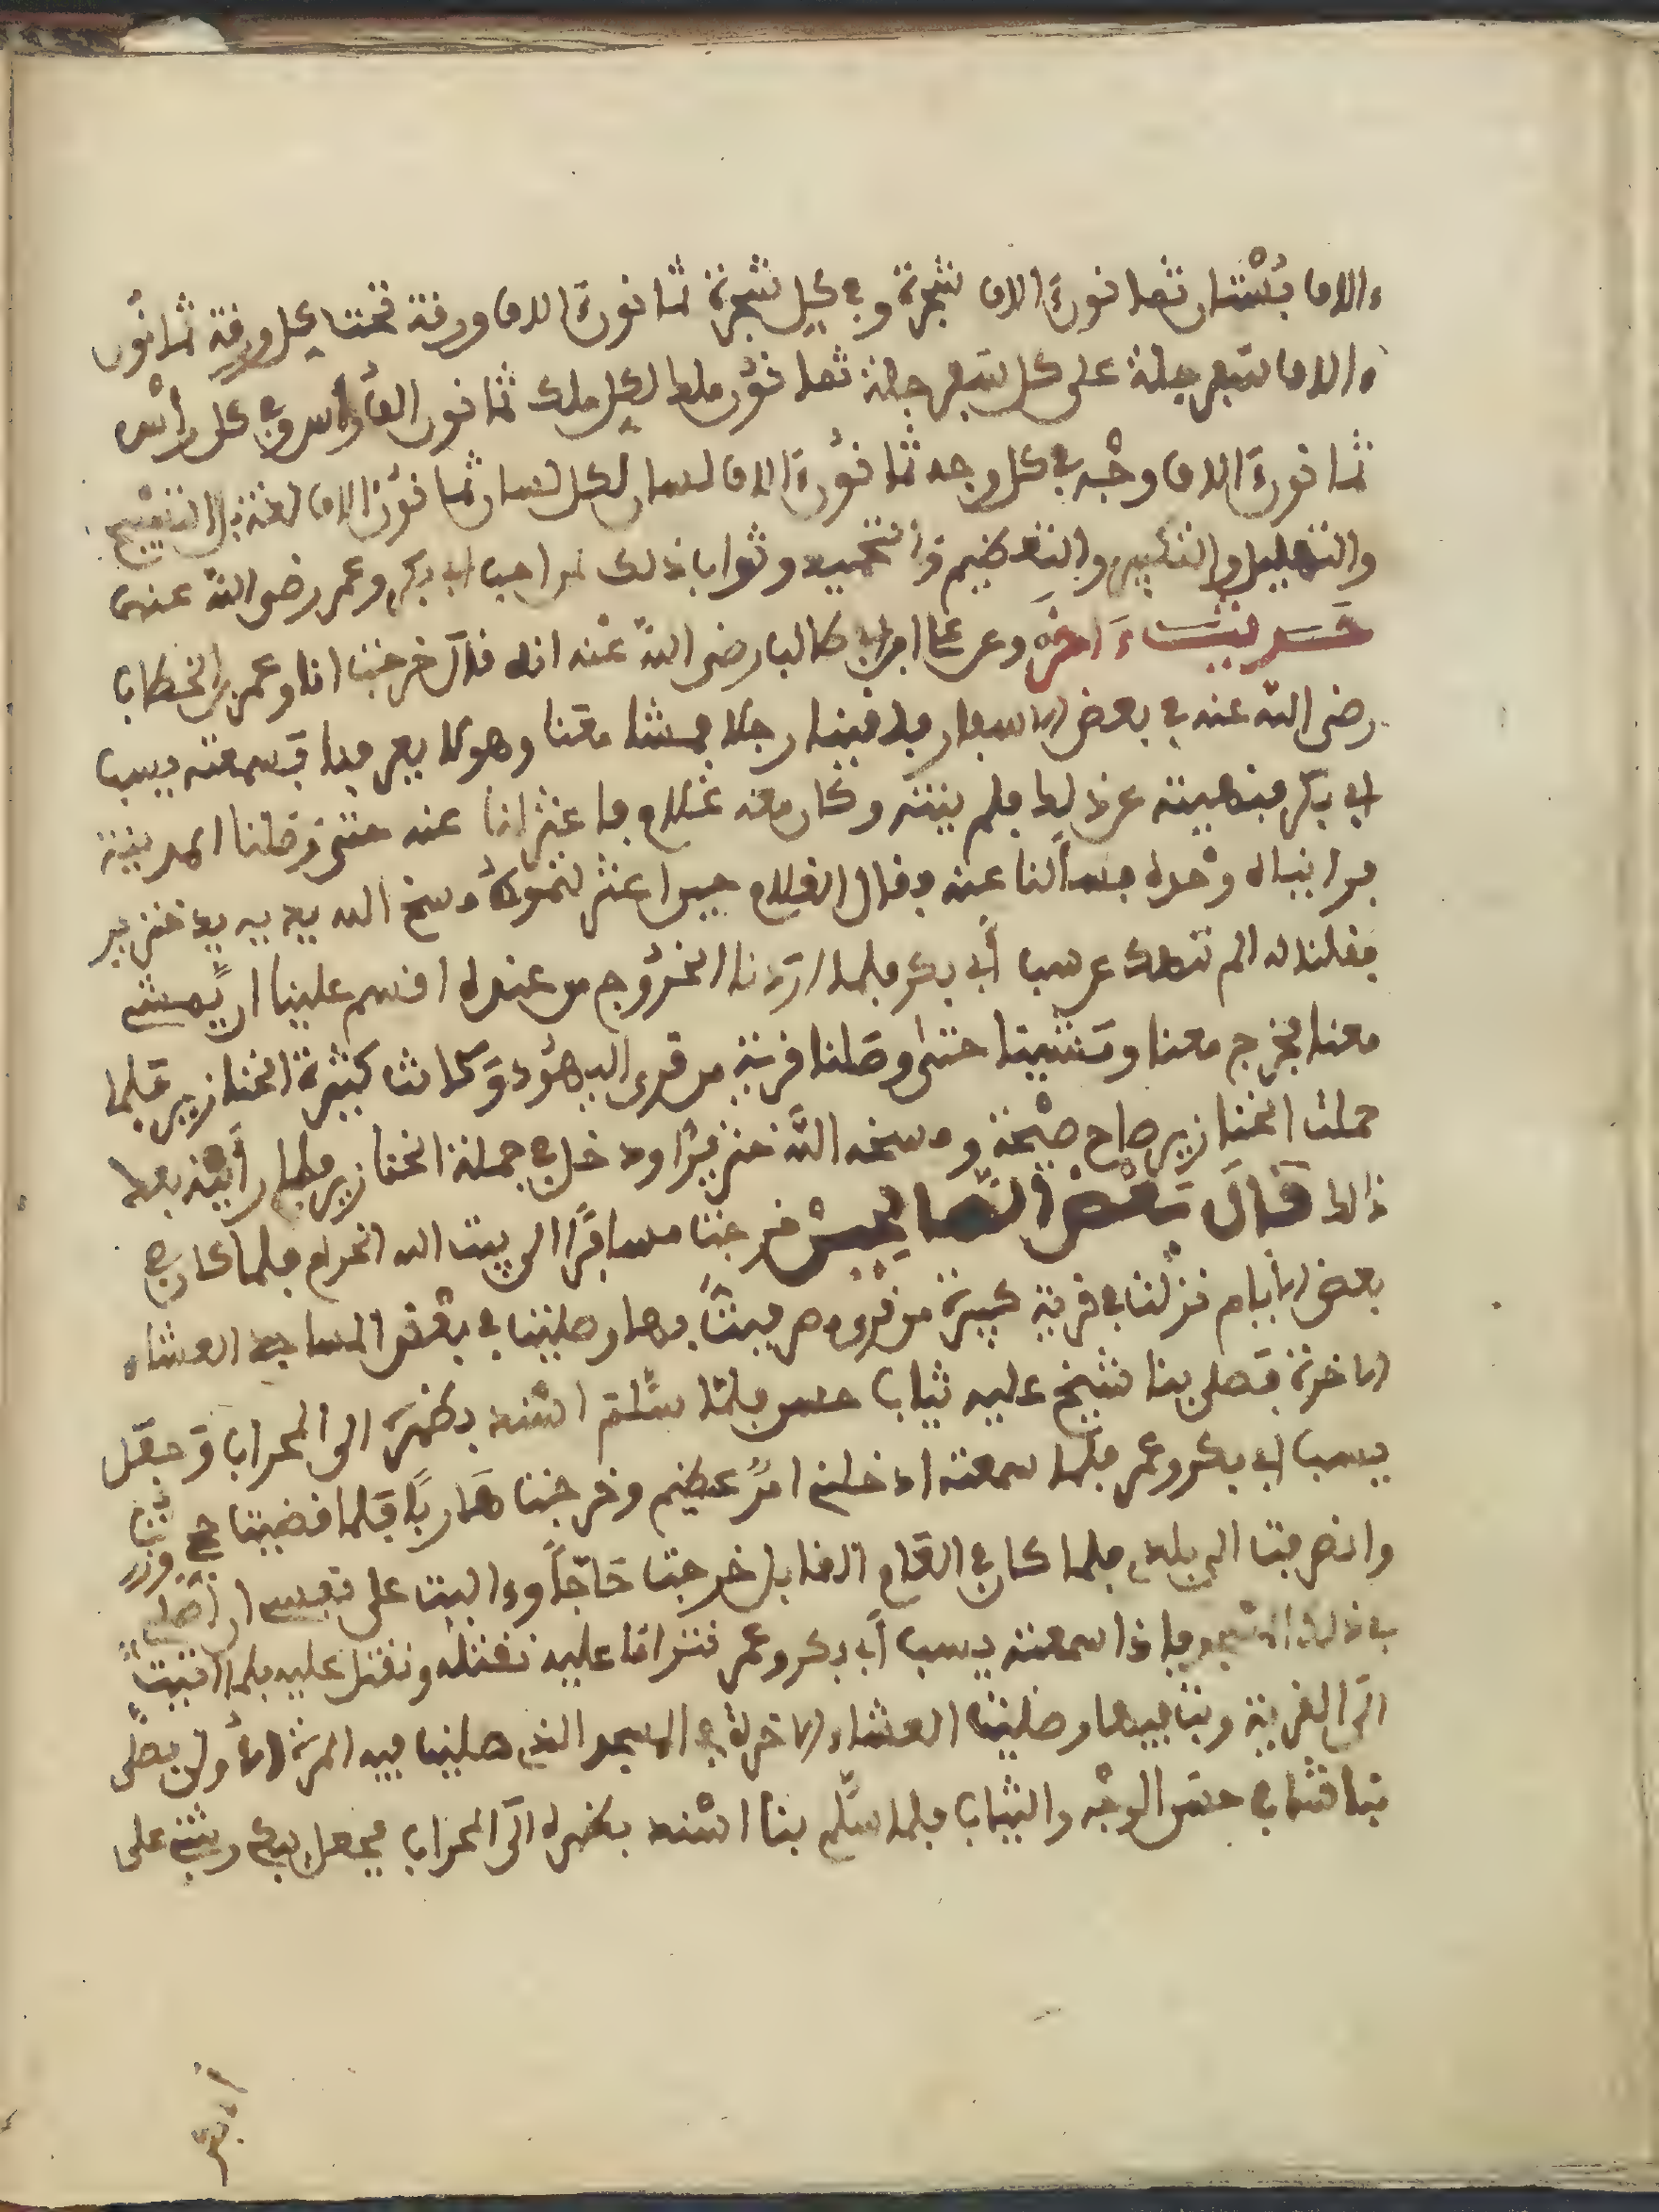 ءالاف بُسْتان ثمانون ءالاف شجرة وفي كل شجرة ثمانون ءالاف ورقة تحت كل ورقة ثمانون
ءالاف على كل ثمانون ملك لكل ملك ثمانون الف رأس وفي كل رأس
ثمانون ءالاف وجْه في كل وجه ثمانون ءالاف لسان لكل لسان ثمانون ءالاف لغة التسبيح
والتهليل والتكبير والتعظيم والتحميد وثواب ذلك لمن احب ابي بكر وعمر رضي الله عنهما
حديث ءاخر وعن علي ابن ابي طالب رضي الله عنه انه قال خرجت انا وعمر بن الخطاب
رضي الله عنه في بعض الاسفار فلقينا رجلا فمشا معنا وهو لا يعرفنا فسمعته يسب
ابي بكر فنهيته عن ذلك فلم ينته وكان معه غلام فاعتزلنا عنه حتى وصلنا المدينة
فراينياه وحده فسألنا عنه فقال الغلام مسخ الله يديه يد خنزير
فقلنا له الم ننهك عن سب أبي بكر فلما اردنا الخروج من عنده اقسم علينا ان يمشي
معنا فخرج معنا ومشينا حتى وصلنا قرية من قرى اليهود وكانت كثيرة الخنازير فلما
حملت الخنازير صاح صيحة ومسخه الله خنزيرا ودخل في جملة الخنازير فلم رأيته بعد
ذالك قال بَعْض الصالحين خرجت مسافرًا الى بيت الله الحرام فلما كان في
بعض الأيام نزلت في قرية كبيرة من قرى مصر فبتُّ بها وصليت في بعض المساجد العشاء
الاخرة فصلى بنا شيخ عليه ثياب حسن فلما سلم اسند بظهره الى المحراب وجعل
يسب ابي بكر وعمر فلما سمعته ادخلني امرٌ عظيم وخرجت هاربًا فلما قضيت حجتي وزرت
وانصرفت الى بلدي فلما كان في العام القابل خرجت حَاجّاً وءاليت على نفسي ان أصلي
في ذلك المسجد فاذا سمعته يسب أبي بكر وعمر عليه نقتله ونقتل عليه فلما اتيتُ
الى القرية وبت فيها وصليت العشاء الاخرة في المسجد الذي صليت فيه المرة الأولى فصلى
بنا شاب حسن الوجْه والثياب فلما سلّم بنا اسند بظهره الى المحراب فجعل يبكي ويثني على